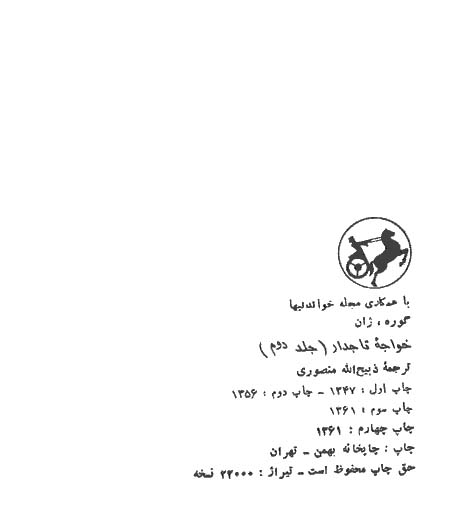 با همکاری مجله خواندنیها
گوره ، ژان
خواجهٔ تاجدار (جلد دوم)
ترجمهٔ ذبیح‌الله منصوری
چاپ اول : ۱۳۴۷ – چاپ دوم : ۱۳۵۶
چاپ سوم : ۱۳۶۱
چاپ چهارم : ۱۳۶۱
چاپ : چاپخانه بهمن – تهران
حق چاپ محفوظ است – تیراژ : ۲۲۰۰۰ نسخه